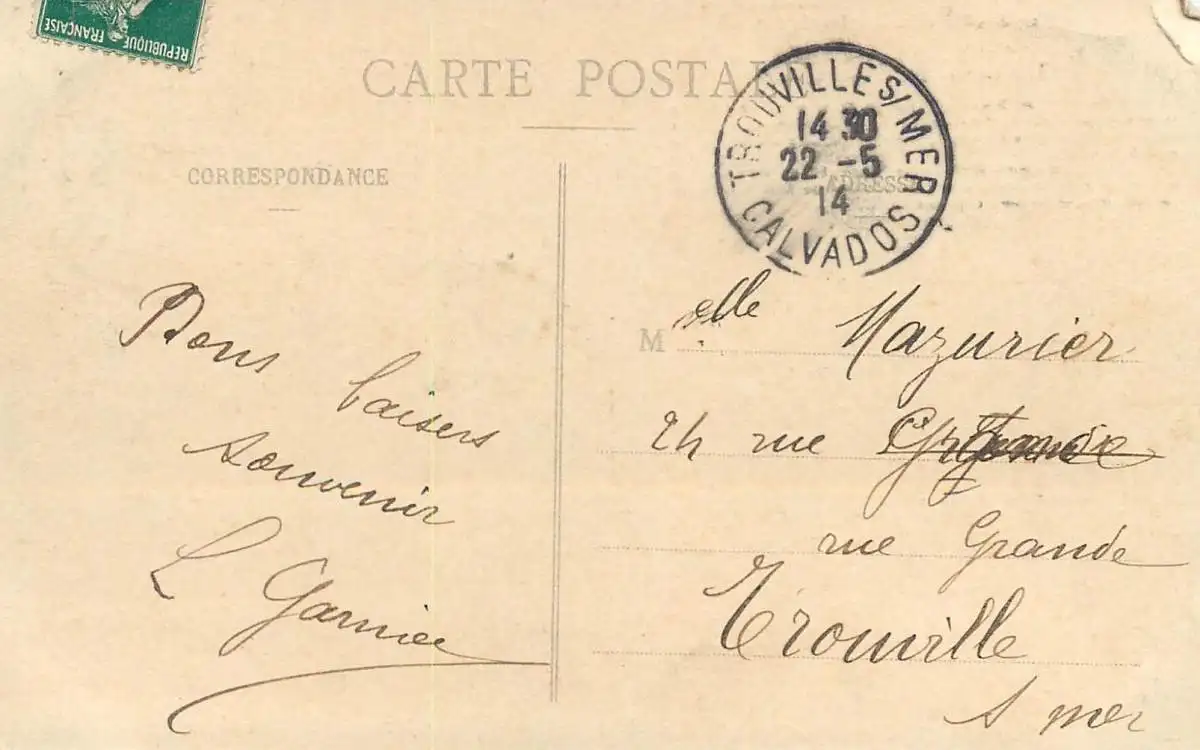 REPUBLIQUE FRANÇAISE
CARTE POSTA
TROUVILLE S/MER
14 30
22 -5
14
CALVADOS
CORRESPONDANCE
ADRESSE
Bons baisers
souvenir
L Garnier
M elle Mazurier
24 rue Grande
rue Grande
Trouville
s mer